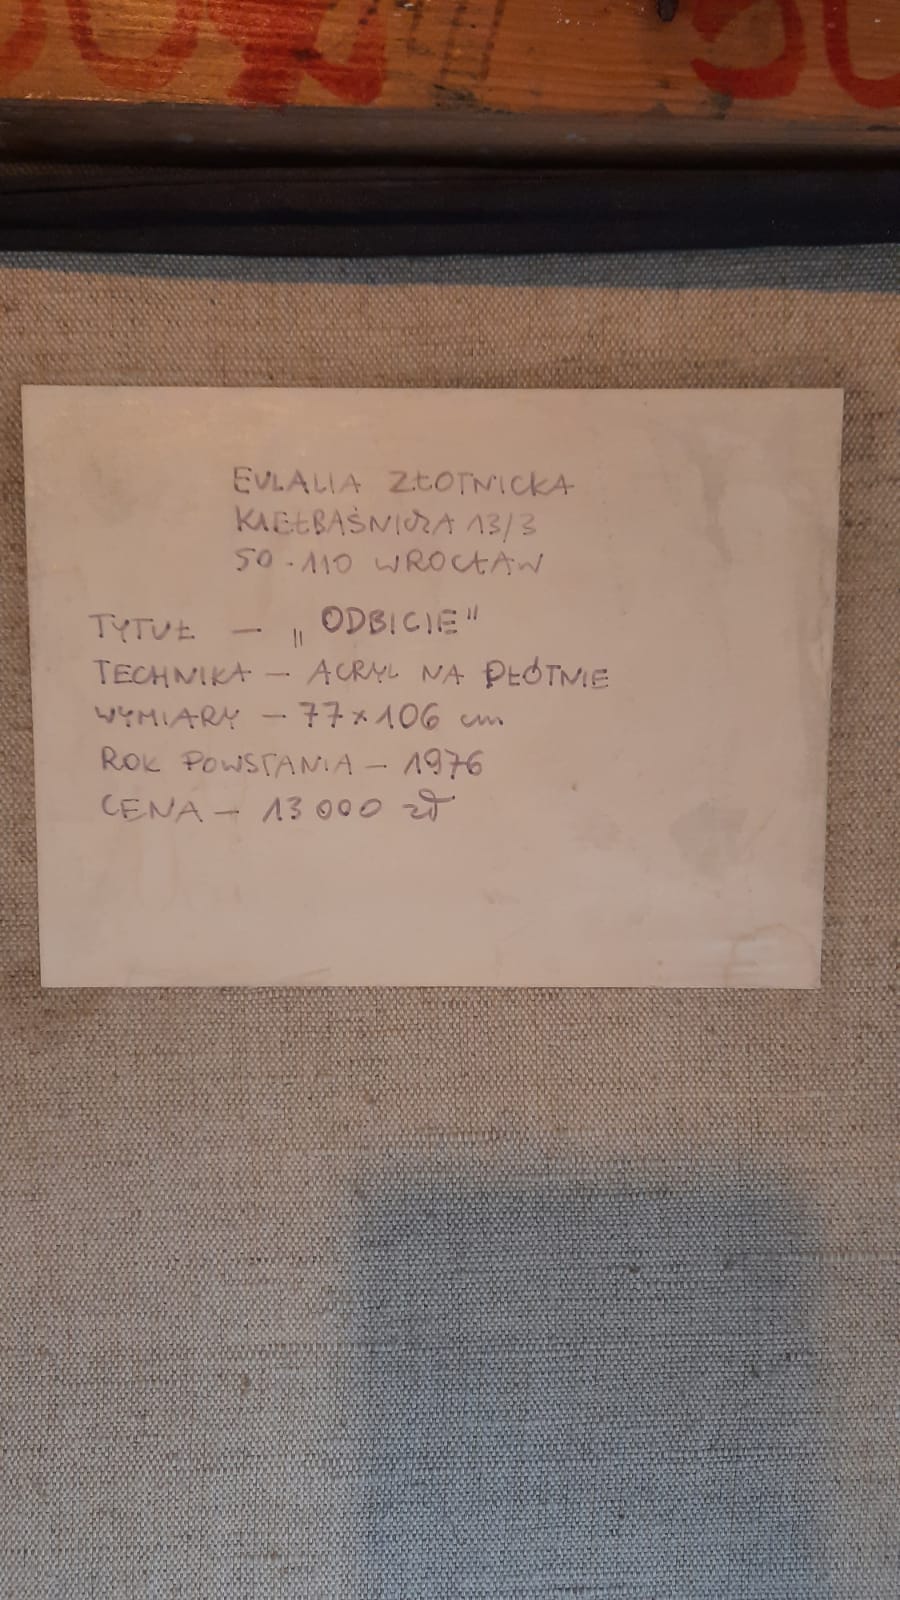 EULALIA ZŁOTNICKA
KIEŁBAŚNICZA 13/3
50-110 WROCŁAW
TYTUŁ — „ODBICIE"
TECHNIKA — ACRYL NA PŁÓTNIE
WYMIARY — 77 x 106 cm
ROK POWSTANIA — 1976
CENA — 13 000 zł